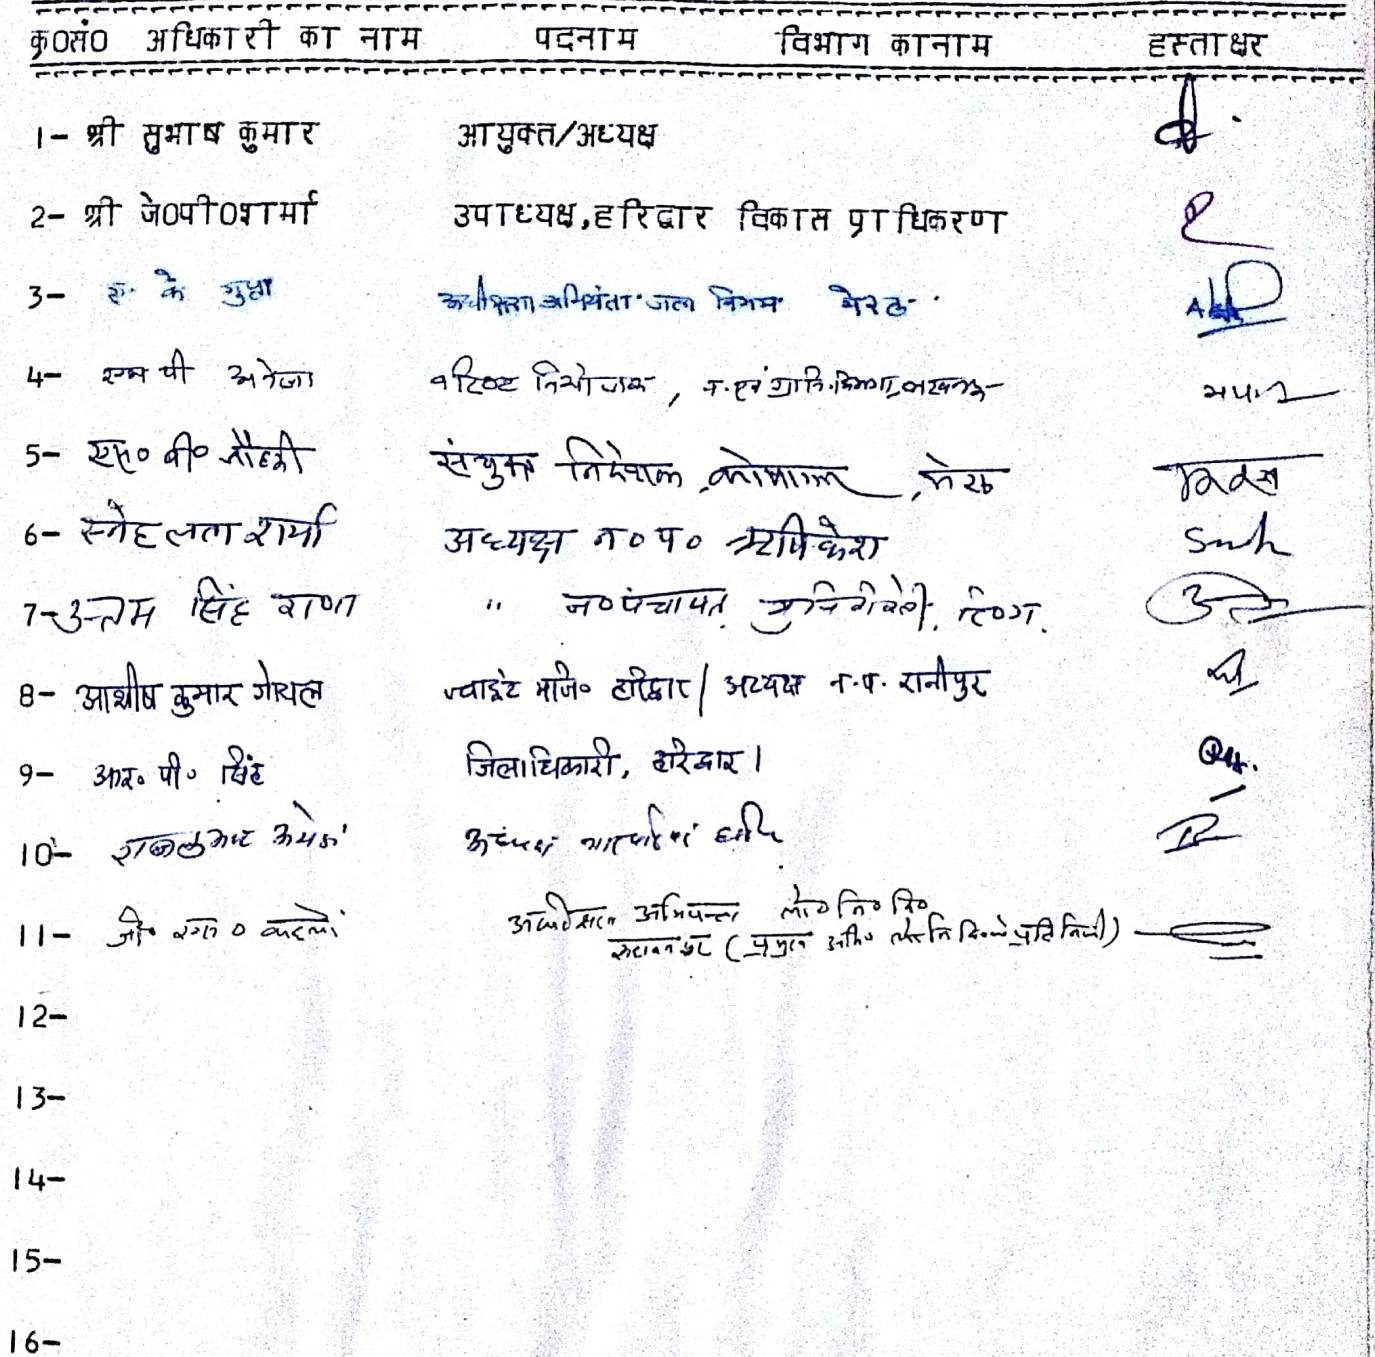 क्र0सं0 अधिकारी का नाम पदनाम विभाग का नाम हस्ताक्षर
1- श्री सुभाष कुमार आयुक्त/अध्यक्ष
2- श्री जे0पी0शर्मा उपाध्यक्ष,हरिद्वार विकास प्राधिकरण
3- ए. के गुप्ता अधीक्षण अभियंता जल निगम मेरठ
4- एन पी अनेजा वरिष्ठ नियोजक,
5- एस० वी० जौहरी संयुक्त निदेशक, कोषागार, मेरठ
6- स्नेहलता शर्मा अध्यक्ष न०प० ऋषिकेश
7- उत्तम सिंह राणा " न०पंचायत, मुनिकीरेती, टि०ग.
8- आशीष कुमार गोयल ज्वाइंट मजि० हरिद्वार/ अध्यक्ष न.प. रानीपुर
9- आर० पी० सिंह जिलाधिकारी, हरिद्वार।
10- अध्यक्ष
11- जी० एस० अधीक्षण अभियन्ता लो० नि० वि०
(प्रमुख अभि० लो० नि वि० के प्रतिनिधी)
12-
13-
14-
15-
16-